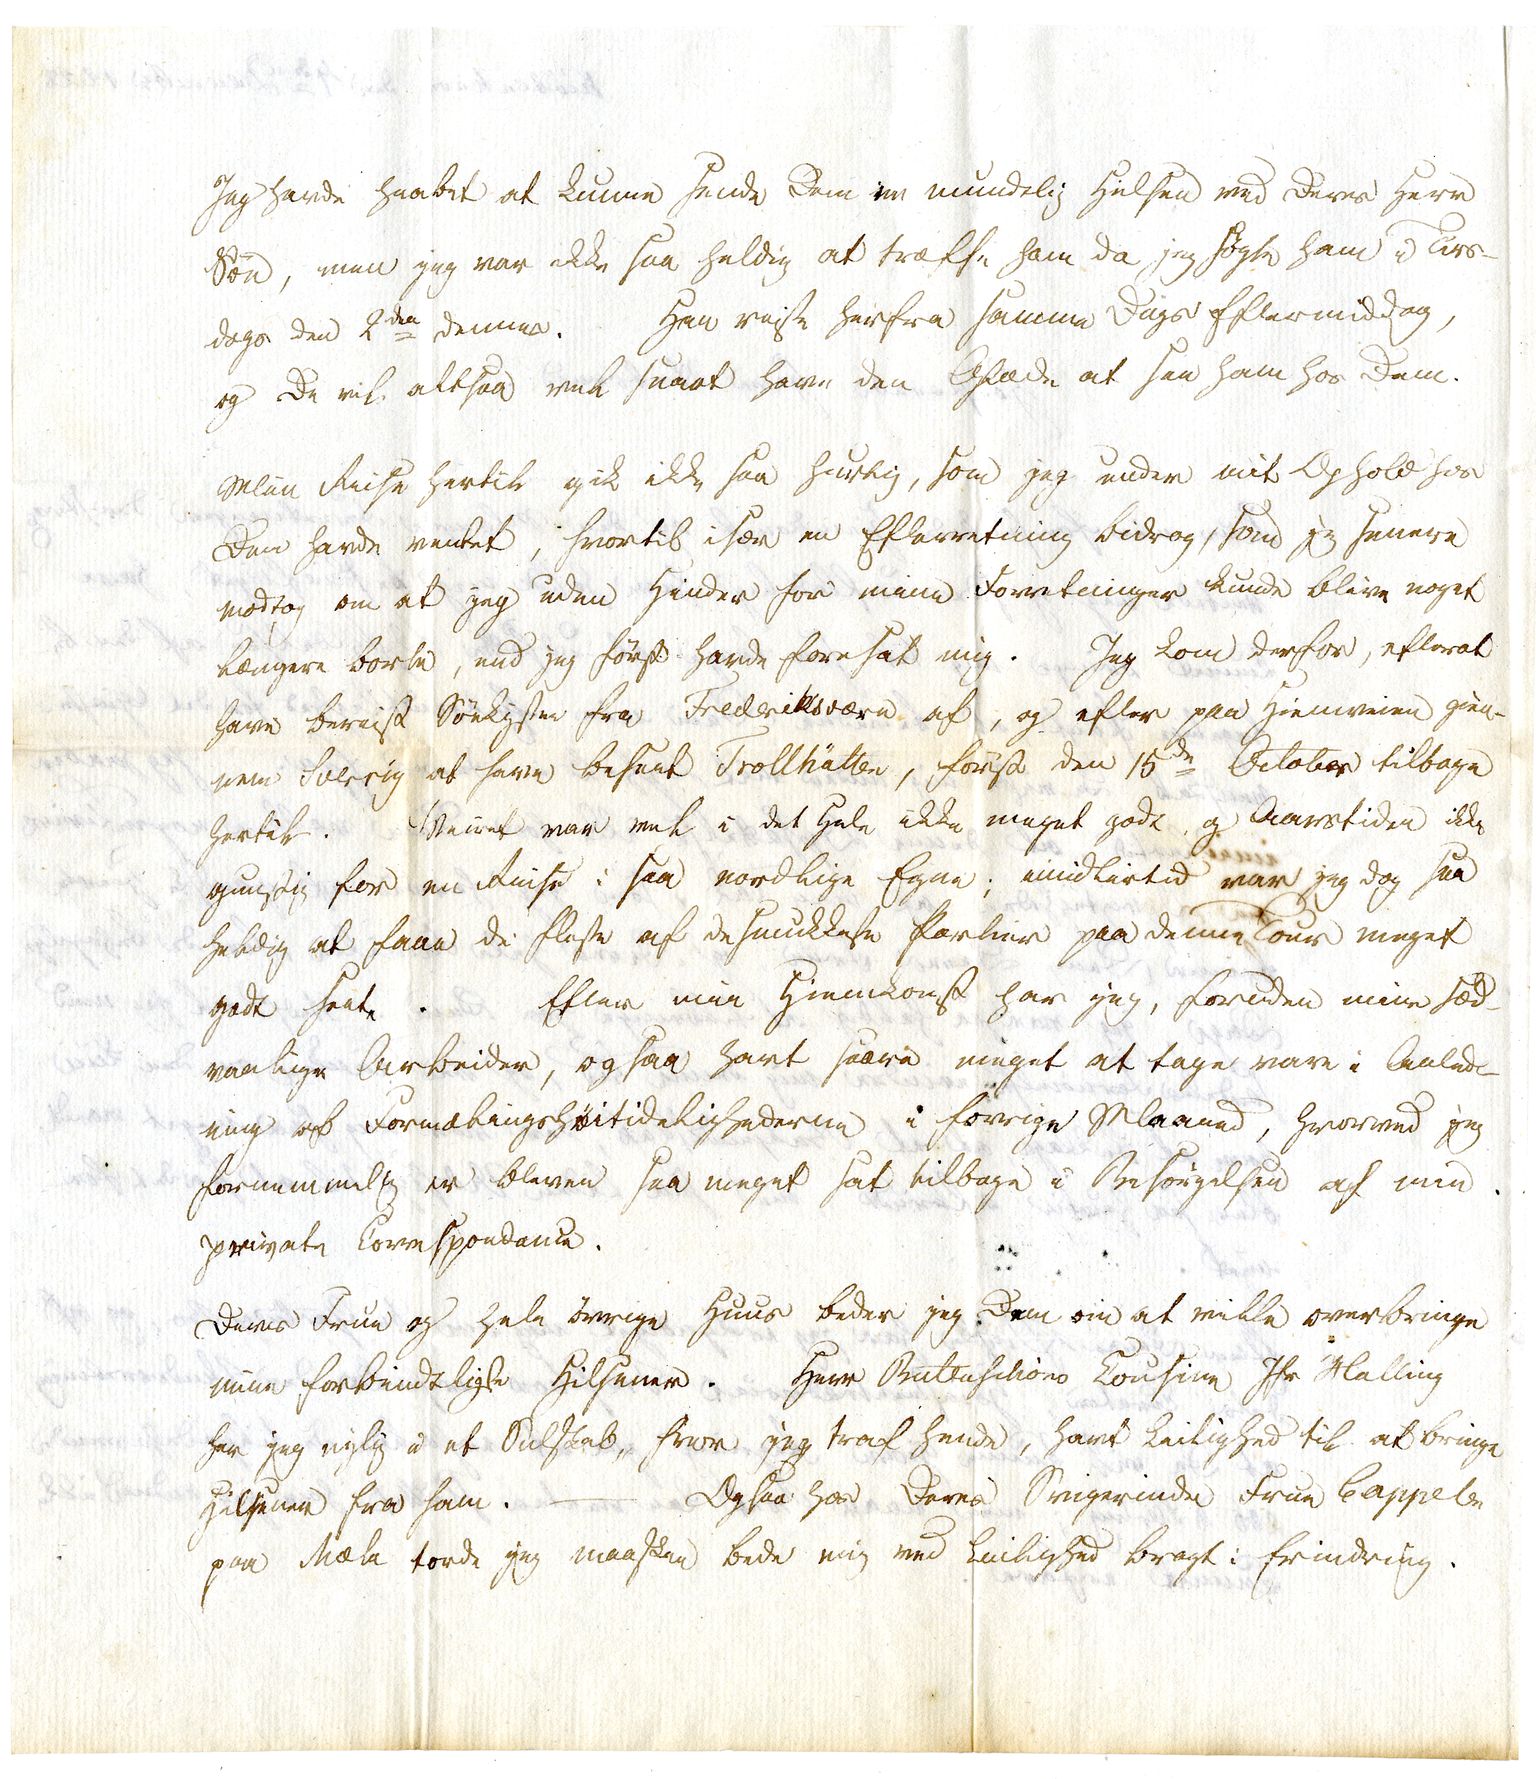 Jeg havde haabet at kunne sende Dem en mundelig Hilsen ved Deres Herr
Søn, men jeg var ikke saa heldig at træffe ham da jeg søgte ham i Tirs-
dags den 2den dennes. Han reiste herfra samme Dags Eftermiddag,
og De vil altsaa vel snart have den Glæde at see ham hos Dem.
Min Reise hertil gik ikke saa hurtig, som jeg under mit Ophold hos
Dem havde ventet, hvortil især en Efterretning bidrog, som jeg senere
modtog om at jeg uden Hinder for mine Forretninger kunde blive noget
længere borte, end jeg først havde foresat mig. Jeg kom derfor, efterat
have bereist Söekysten fra Frederiksværn af, og efter paa Hiemveien gien-
nem Sverrig at have beseet Trollhätten, først den 15de October tilbage
hertil. Veiret var vel i det Hele ikke meget godt og Aarstiden ikke
gunstig for en Reise i saa nordlige Egne; imidlertid var jeg dog saa
heldig at faae de fleste af de smukkeste Partier paa denne Tour meget
godt seete. Efter min Hiemkomst har jeg, foruden mine sæd-
vanlige Arbeider, ogsaa havt saare meget at tage vare i Anled-
ning af Formælingshöitidelighederne i forrige Maaned, hvorved jeg
fornemmelig er bleven saa meget sat tilbage i Besörgelsen af min
private Correspondance.
Deres Frue og hele övrige Huus beder jeg Dem om at ville overbringe
mine forbindtligste Hilsener. Herr Buttenschöns Cousine Jfr Malling
har jeg nylig i et Selskab, hvor jeg traf hende, havt Leilighed til at bringe
Hilsener fra ham. — Ogsaa hos Deres Svigerinde Frue Cappelen
paa Mæla torde jeg maaskee bede mig ved Leilighed bragt i Erindring.